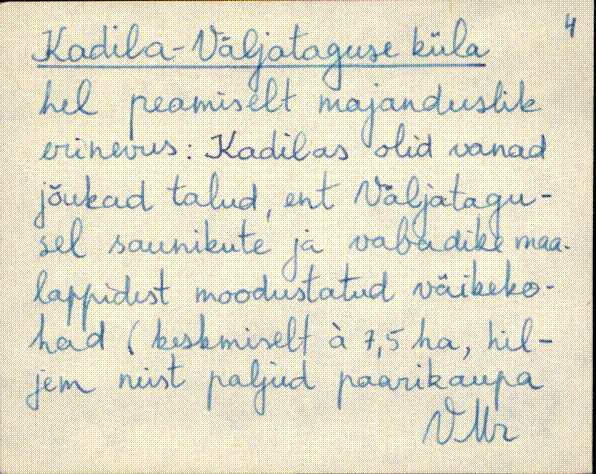 4
Kadila-Väljataguse küla
hel peamiselt majanduslik
erinevus: Kadilas olid vanad
jõukad talud, ent Väljatagu-
sel saunikute ja vabadike maa-
lappidest moodustatud väikeko-
had (keskmiselt à 7,5 ha, hil-
jem neist paljud paarikaupa
VMr